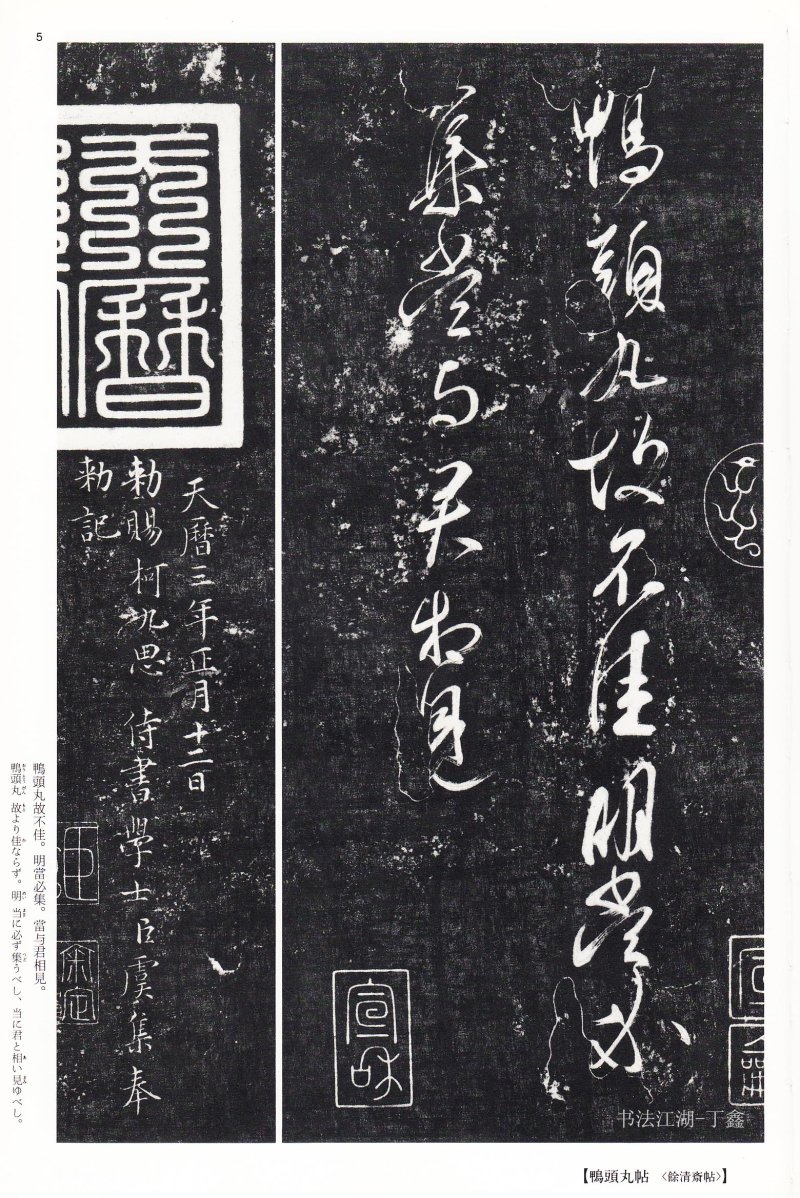 5
鴨頭丸故不佳明當必
集當与君相見
宣和
天曆
天曆三年正月十二日
勑賜柯九思侍書學士臣虞集奉
勑記
鴨頭丸故不佳。明當必集。當与君相見。
鴨頭丸 故より佳ならず。明 当に必ず集うべし、当に君と相い見ゆべし。
书法江湖-丁鑫
【鴨頭丸帖 〈餘清齋帖〉】